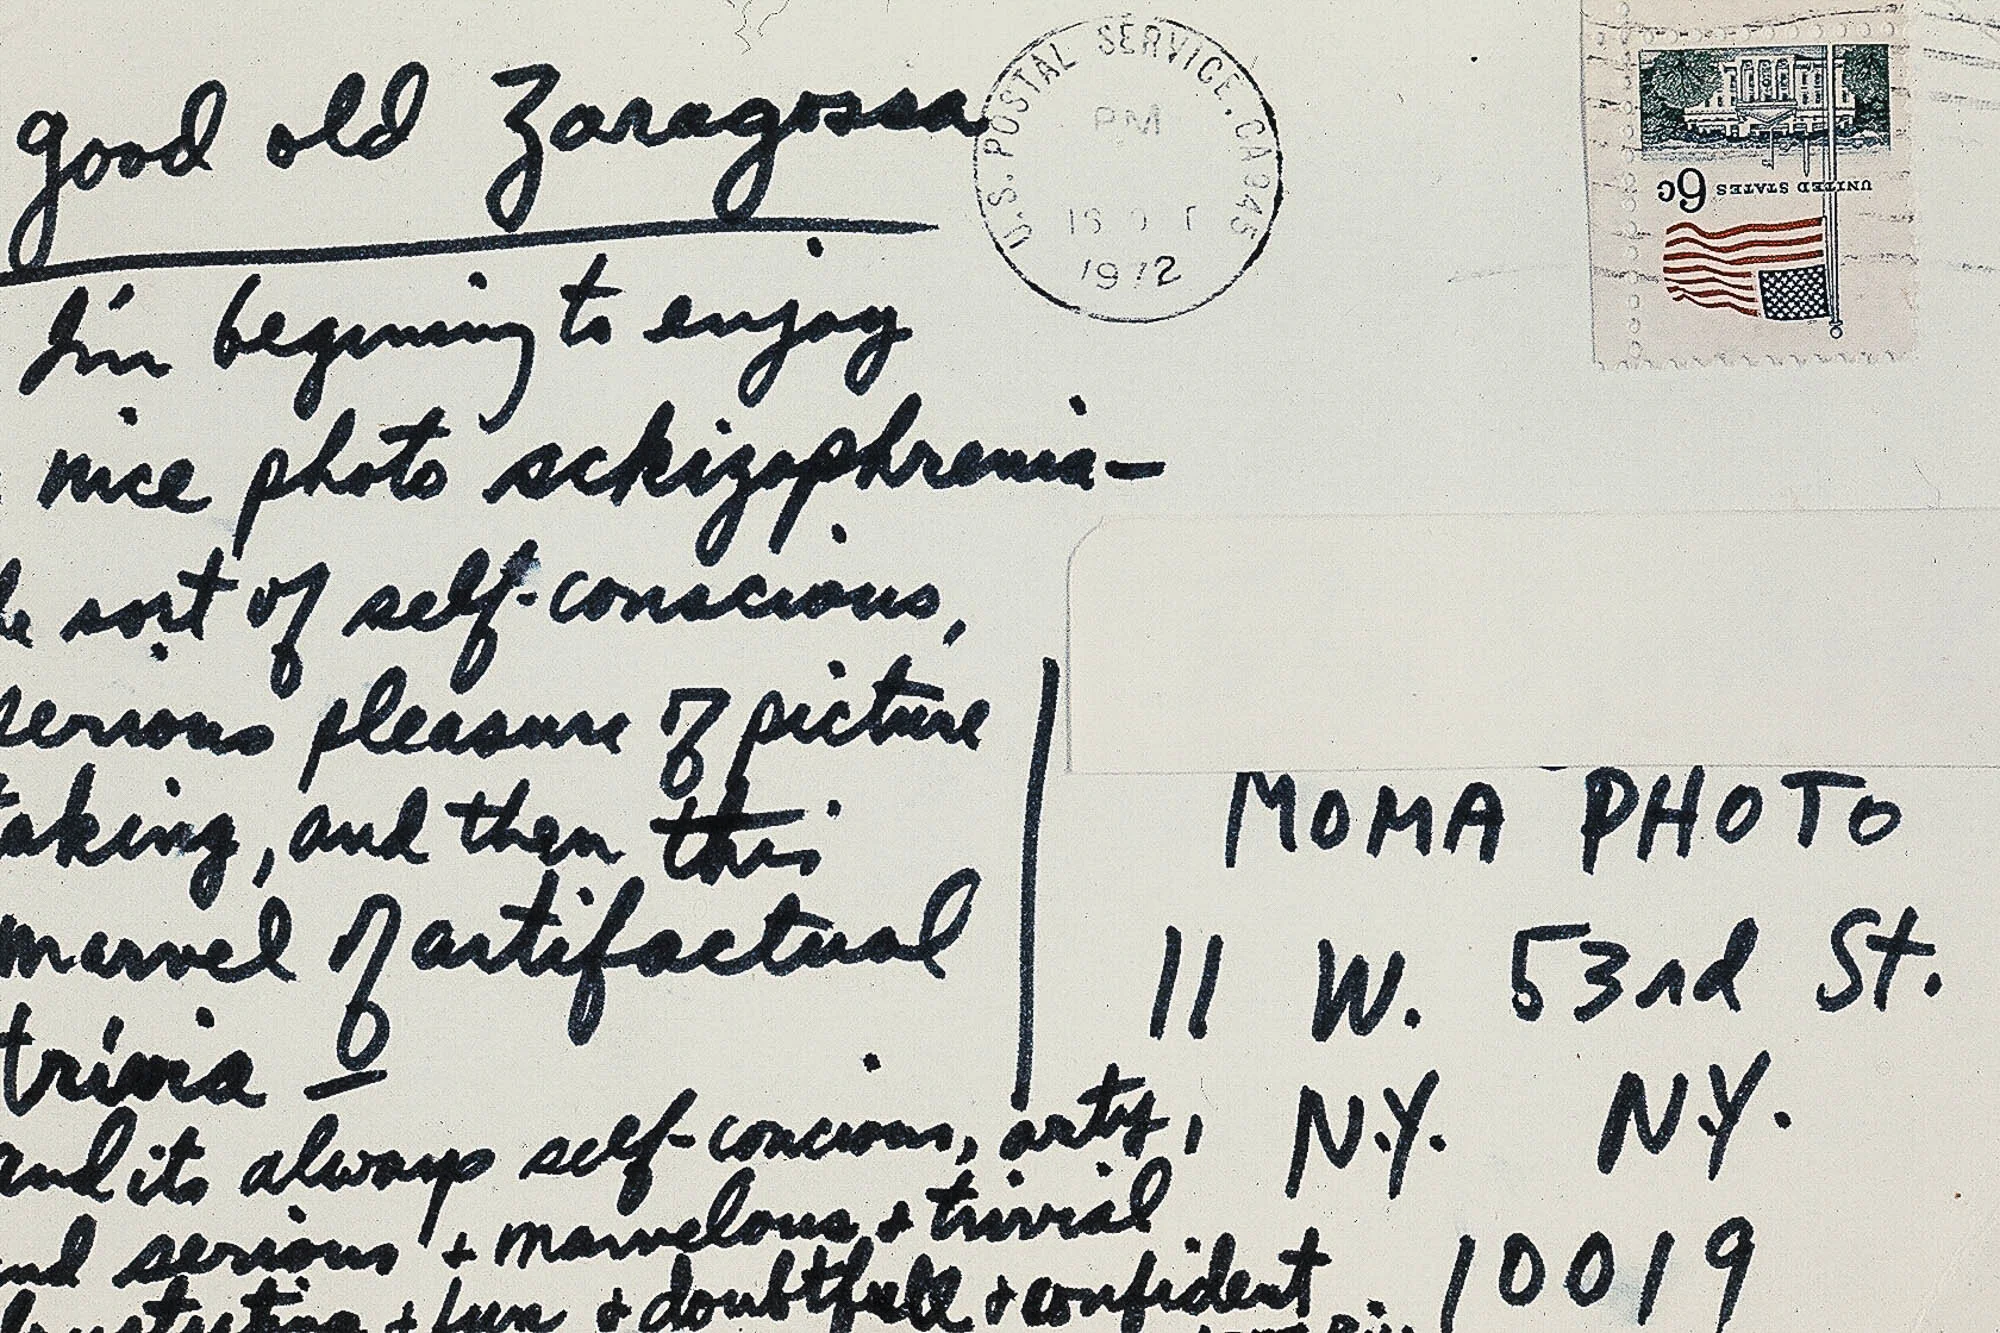 good old Zaragossa
I'm begining to enjoy
nice photo schizophrenia-
sort of self-conscious,
serious pleasure of picture
taking, and then this
marvel of artifactual
trivia -
and its always self-concious, arty,
and serious + marvelous + trivial
frustrating + fun + doubtfull + confident
U.S. POSTAL SERVICE, CA 945
PM
1972
6c UNITED STATES
MOMA PHOTO
11 W. 53rd St.
N.Y. N.Y.
10019